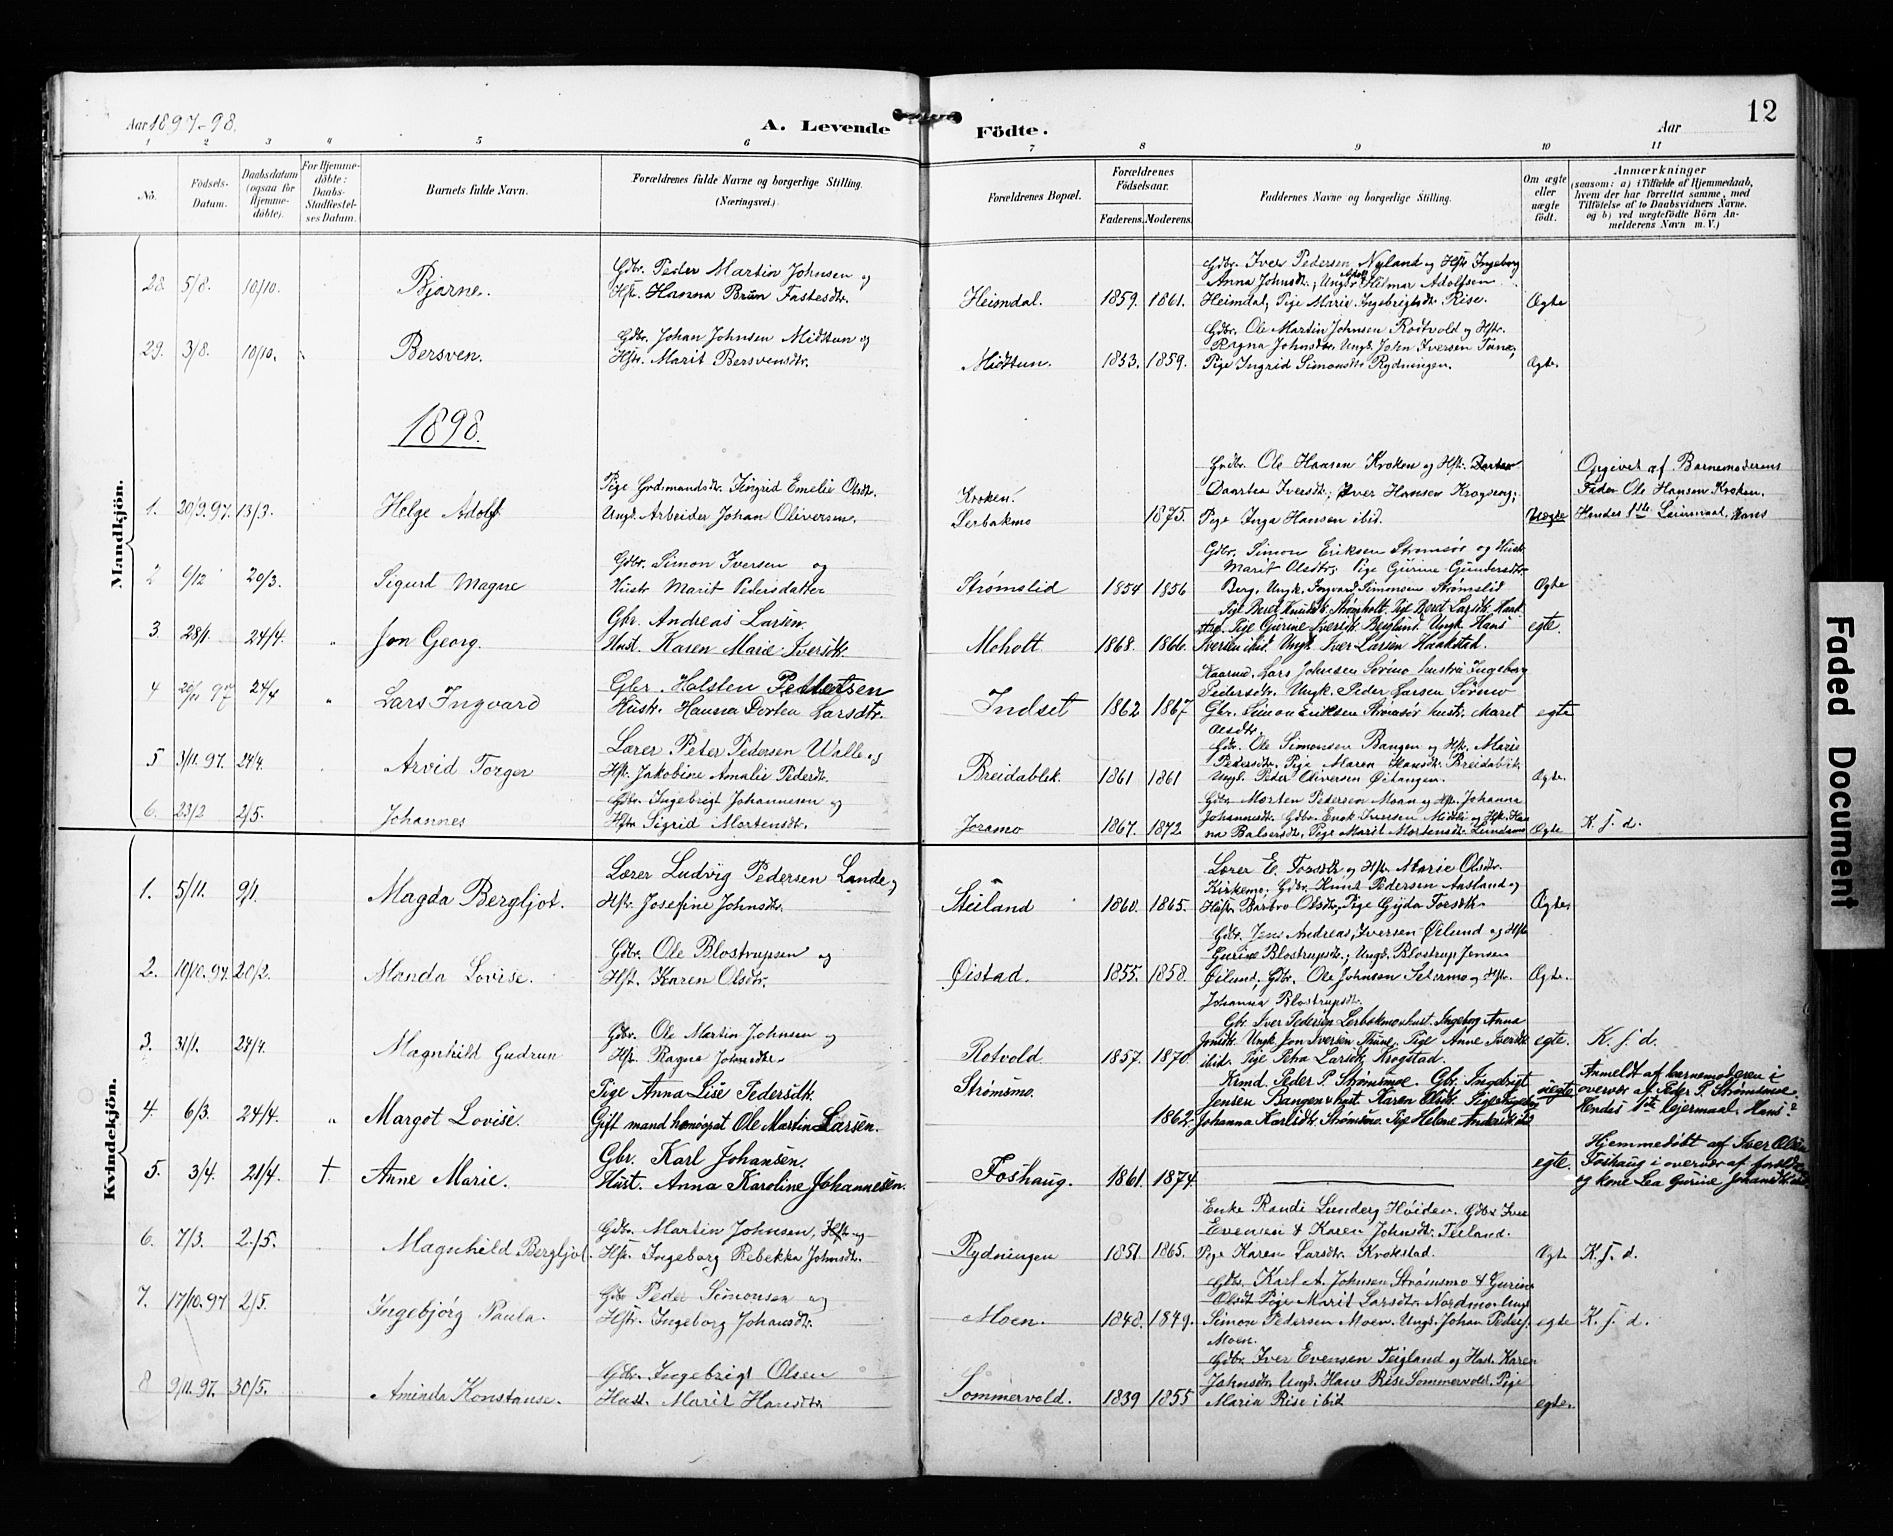 Aar 1897-98.
A. Levende Födte.
Aar
12
1 2 3 4 5 6 7 8 9 10 11
No.
Födsels-Datum.
Daabsdatum (ogsaa for Hjemme-döbte).
For Hjemme-döbte: Daabs-Stadfæstel-ses Datum.
Barnets fulde Navn.
Forældrenes fulde Navne og borgerlige Stilling. (Næringsvei.)
Forældrenes Bopæl.
Forældrenes Födselsaar.
Faderens. Moderens.
Faddernes Navne og borgerlige Stilling.
Om ægte eller uægte födt.
Anmærkninger (saasom: a) i Tilfælde af Hjemmedaab, hvem der har forrettet samme, med Tilföielse af to Daabsvidners Navne. og b) ved uægtefödte Börn An-melderens Navn m. V.)
Mandkjön.
28. 5/8. 10/10. Bjarne. Gdbr. Peder Martin Johnsen og
Hst. Hanna Brun Fastesdtr. Heimdal. 1859. 1861. Ægte
Gdbr. Iver Pedersen Nyland og Hst. Ingeborg
Anna Johnsdtr, Ungk. Hilmar Adolfsen
Heimdal, Pige Marie Ingebrigtsdtr. Rise.
29. 3/8. 10/10. Bersven. Gdbr. Johan Johnsen Midttun og
Hst. Marit Bersvensdtr. Midttun. 1853. 1859. Ægte.
Gdbr. Ole Martin Johnsen Rotvold og Hst.
Ragna Johnsdtr. Ungk. John Iversen
Pige Ingrid Simonsdtr Rydningen.
1898.
1. 20/9.97. 13/3. Helge Adolf Pige Grdmandsdtr. Ingrid Emelie Olsdtr.
Ungk. Arbeider Johan Oliversen. Kroken.
Lerbakmo 1875. Uægte
Grdbr. Ole Hansen Kroken og Hst.
Daartea Iversdtr; Iver Hansen
Pige Inga Hansen ibid.
Opgivet af Barnemoderens
Fader Ole Hansen Kroken.
Hendes 1ste Leiermaal, Hans
2 6/12 20/3. Sigurd Magne Gdbr. Simon Iversen og
Hustr Marit Pedersdatter Strømslid 1854 1856 Ægte
Gdbr. Simon Eriksen Strømsør og Hust.
Marit Olsdtr; Pige Gurine Gundersdtr
Berg, Ungk. Ingvard Simonsen Strømslid
3. 28/1. 24/4. " Jon Georg. Gbr. Andreas Larsen.
Hust. Karen Marie Iversdtr. Moholt 1868. 1866. egte.
Pige Berit Knudsdtr. Strømholt. Pige Berit Larsdtr.
Pige Gurine Iversdtr. Berglund. Ungk. Hans
Iversen ibid. Ungk. Iver Larsen Haakstad.
4 24/4 " Lars Ingvard Gbr. Halsten Pettersen
Hustr. Hanna Dortea Larsdtr. Indset 1862 1867 egte
Kaarmd. Lars Johnsen Sørmo hustru Ingeborg
Pedersdtr. Ungk. Peder Larsen Sørmo
Gbr. Simon Eriksen Strømsør hustr. Maret
Olsdtr.
5 3/11.97. 24/4. Arvid Torger Lærer Peter Pedersen Walle og
Hst. Jakobine Amalie Pedersdtr. Breidablik. 1861 1861 Ægte.
Gdbr. Ole Simonsen Bangen og Hst. Marie
Pedersdtr. Pige Maren Hansdtr. Breidablik
Ungk. Peder Oliversen Øitangen.
6. 23/2 2/5. Johannes Gdbr. Ingebrigt Johannesen og
Hstr Sigrid Mortensdtr. Joramo 1867. 1872 Ægte K. f. d.
Gdbr. Morten Pedersen Moan og Hst. Johanna
Johannsdtr. Gdbr. Enok Iversen Midtli og Hst. Han
na Balsersdtr, Pige Marit Mortensdtr. Lundamo
Kvindekjön.
1. 5/11. 9/1. Magda Bergljot. Lærer Ludvig Pedersen Lande og
Hst. Josefine Johnsdtr. Steiland 1860. 1865. Ægte
Lærer E. Forsdtr og Hst. Marie Olsdtr.
Kirkemo; Gdbr. Knut Pedersen Aasland og
Hustr Barbro Olsdtr, Pige Gyda Torsdtr.
2. 10/10.97. 20/2. Manda Lovise. Gdbr. Ole Blostrupsen og
Hst. Karen Olsdtr. Øistad. 1855. 1858. Ægte.
Gdbr. Jens Andreas Iversen Øilund og Hst.
Gurine Blostrupsdtr.; Ungk. Blostrup Jensen
Øilund, Gdbr. Ole Johnsen Setermo og Hst.
Johanna Blostrupsdtr.
3. 31/1. 24/4. Magnhild Gudrun Gdbr. Ole Martin Johnsen og
Hst. Ragna Johnsdtr. Rotvold 1857. 1870 egte. K. f. d.
Gbr. Iver Pedersen Lerbakmo hust. Ingeborg Anna
Jonsdtr. Ungk Jon Iversen Thune, Pige Anne Iversdtr
ibid. Pige Petra Larsdtr. Krogstad.
4. 6/3. 24/4. " Margot Lovise. Pige Anna Lise Pedersdtr.
Gift mand Ole Martin Larsen. Strømsmo. 1862. uegte
Kmd. Peder P. Strømsmo. Gbr. Ingebrigt
Jensen Bangen & hust Karen Olsdtr. Pige Ingebor
Johanna Karlsdtr. Strømsmo. Pige Helene Andersdtr ibid
Anmeldt af barnemoderen i
overvær af Peder P. Strømsmo.
Hendes 1ste lejermaal, Hans 2
5. 3/4. 24/4. † Anne Marie. Gbr. Karl Johansen.
Hust. Anna Karoline Johannesen. Foshaug. 1861. 1874. egte.
Hjemmedøbt af Iver Olsen
Foshaug i overvær af foreldr
og kone Lea Gurine Johansdtr ibid
6. 7/3. 2/5. Magnhild Bergljot. Gdbr. Martin Johnsen, og
Hst. Ingeborg Rebekka Johnsdtr. Rydningen 1851. 1865. Ægte K. f. d.
Enke Randi Lunderg Høiden. Gdbr Iver
Evensen & Karen Johnsdtr. Teiland.
Pige Karen Larsdtr. Krokstad.
7. 17/10.97 2/5. Ingebjörg Paula. Gdbr Peder Simonsen og
Hstr. Ingeborg Johansdtr. Moen. 1848. 1849. egte K. f. d.
Gdbr. Karl A. Johnsen Strømsmo & Gurine
Olsdt Pige Marit Larsdtr. Nordmo. Ungk
Simon Pedersen Moen. Ungk. Johan Peders.
Moen.
8 9/11.97. 30/5. Aminda Konstanse. Gdbr. Ingebrigt Olsen
Hust. Marit Hansdtr Sommervold. 1839 1855 egte.
Gdbr. Iver Evensen Teigland og Hust. Karen
Johnsdtr. Ungk. Hans Rise Sommervold. Pige
Maria Rise ibid
Faded Document